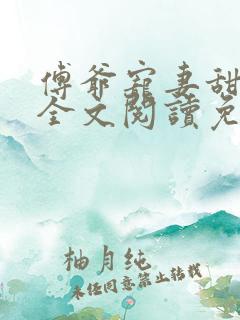 傅爺寵妻甜
全文閱讀免
柚月纯
未经同意禁止转载